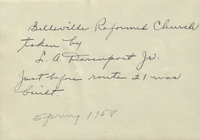 Belleville Reformed Church
taken by
L. A. Davenport Jr.
Just before route 21 was
built.
Spring 1954